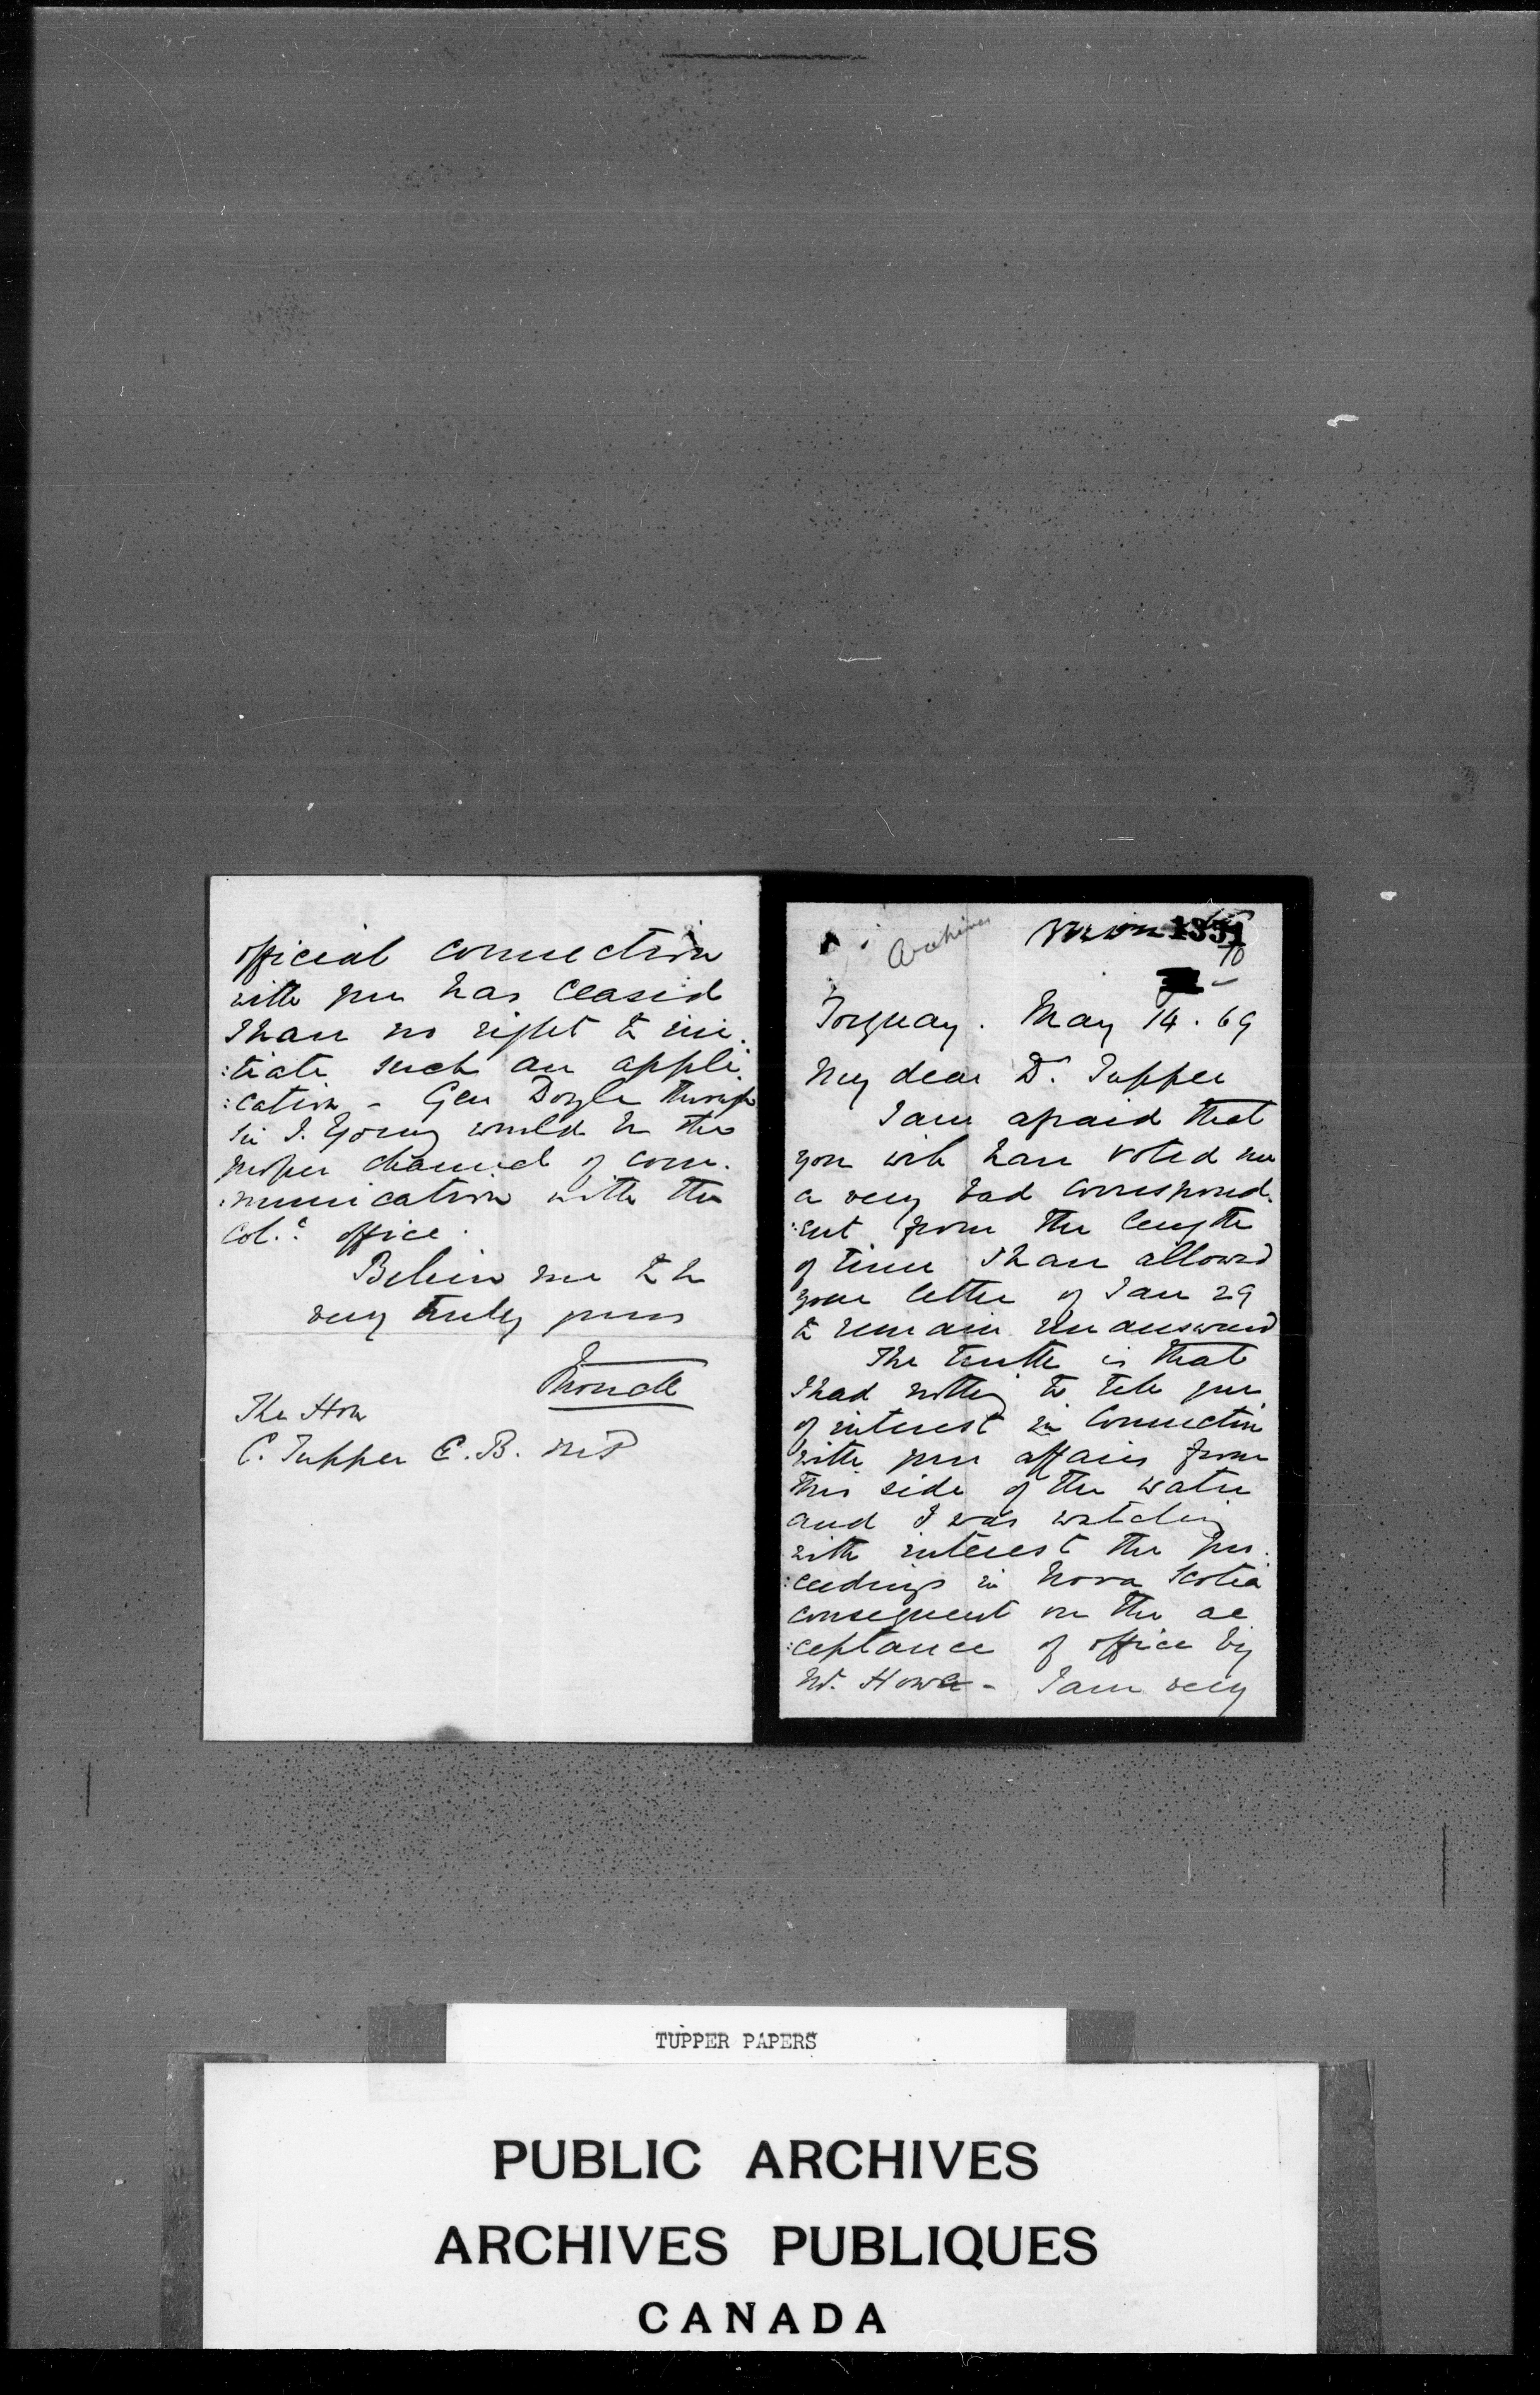 official connection
with you has ceased
I have no right to ini
:tiate such an appli
:cation - Gen Doyle through
Sir J. Young would be the
proper channel of com.
:munication with the
Col.^l office.
Believe me to be
very truly yours
Monck
The Hon
C. Tupper C.B. MP
Archives
1351
Torquay. May 14. 69
My dear Dr. Tupper
I am afraid that
you will have voted me
a very bad correspond.
:ent from the length
of time I have allowed
your letter of Jan 29
to remain unanswered
The truth is that
I had nothing to tell you
of interest in connection
with your affairs from
this side of the water
and I was watching
with interest the pro.
:ceedings in Nova Scotia
consequent on the ac
:ceptance of office by
Mr. Howe - I am very
TUPPER PAPERS
PUBLIC ARCHIVES
ARCHIVES PUBLIQUES
CANADA